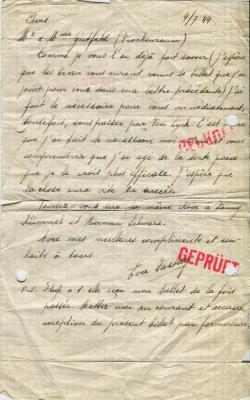 Chers 4/7.44
Mr + Mme Gutfeld
Comme je vous l'ai déjà fait savoir (j'espère
que les vous auront remis le billet que j'ai
joint pour vous dans ma lettre précédente) j'ai
fait le nécessaire pour vous immédiatement,
toutefois, sans passer par Van Tyck. C'est
que j'ai fait le nécessaire vous
comprendrez que j'ai agi de la sorte parce
que je le crois plus efficace. J'espère que
la chose aura vite du succès.
Voulez-vous dire la même chose à Fanny
Kümmel et Herman Schwarz.
Avec mes meilleurs compliments et
à tous
Eva
GEPRÜFT
P.S. a t-elle reçu mon billet de la fois
passée. Mettez moi au courant et accusez
réception du présent billet par formulaire.